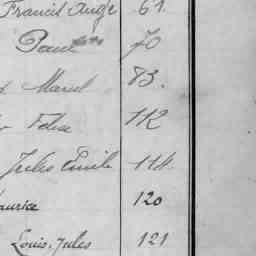 Francis Ange 61.
Paul 70
Marcel 83.
Félix 112
Jules Emile 114.
aurice 120
Louis, Jules 121